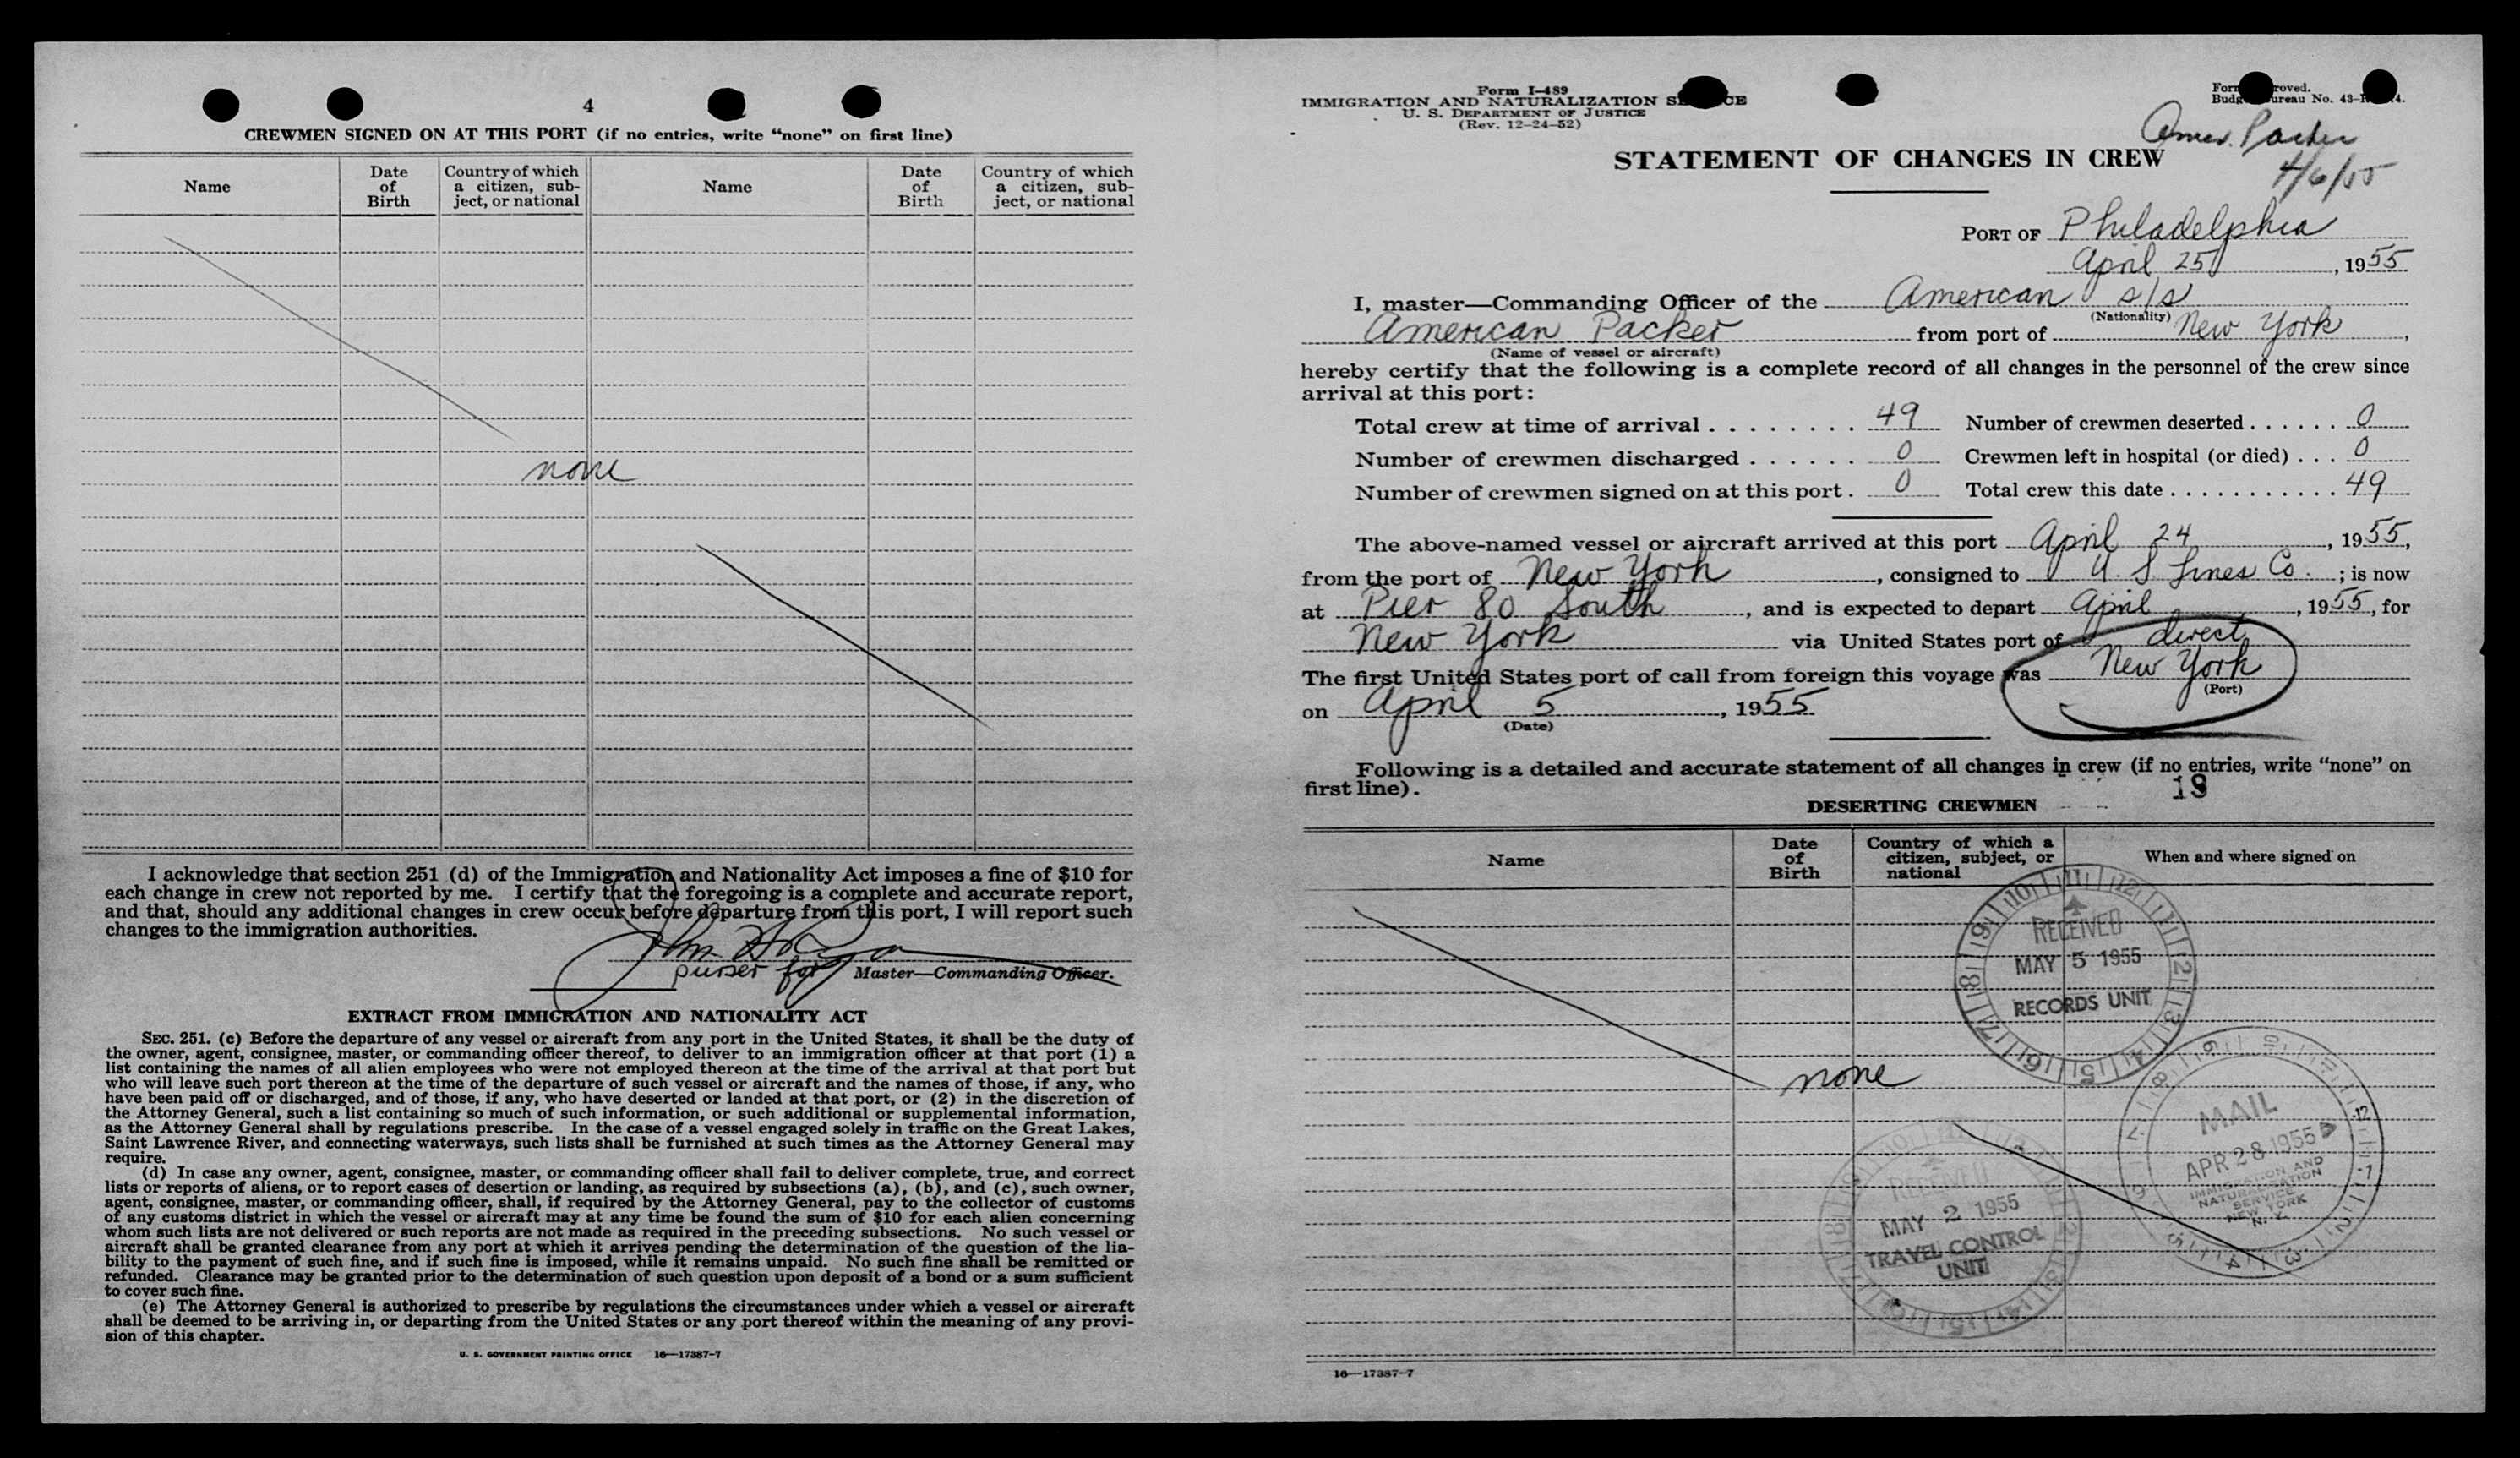 4
CREWMEN SIGNED ON AT THIS PORT (if no entries, write “none” on first line)
Name
Date of Birth
Country of which a citizen, sub-ject, or national
Name
Date of Birth
Country of which a citizen, sub-ject, or national
none
I acknowledge that section 251 (d) of the Immigration and Nationality Act imposes a fine of $10 for
each change in crew not reported by me. I certify that the foregoing is a complete and accurate report,
and that, should any additional changes in crew occur before departure from this port, I will report such
changes to the immigration authorities.
John
purser for Master—Commanding Officer.
EXTRACT FROM IMMIGRATION AND NATIONALITY ACT
SEC. 251. (c) Before the departure of any vessel or aircraft from any port in the United States, it shall be the duty of
the owner, agent, consignee, master, or commanding officer thereof, to deliver to an immigration officer at that port (1) a
list containing the names of all alien employees who were not employed thereon at the time of the arrival at that port but
who will leave such port thereon at the time of the departure of such vessel or aircraft and the names of those, if any, who
have been paid off or discharged, and of those, if any, who have deserted or landed at that port, or (2) in the discretion of
the Attorney General, such a list containing so much of such information, or such additional or supplemental information,
as the Attorney General shall by regulations prescribe. In the case of a vessel engaged solely in traffic on the Great Lakes,
Saint Lawrence River, and connecting waterways, such lists shall be furnished at such times as the Attorney General may
require.
(d) In case any owner, agent, consignee, master, or commanding officer shall fail to deliver complete, true, and correct
lists or reports of aliens, or to report cases of desertion or landing, as required by subsections (a), (b), and (c), such owner,
agent, consignee, master, or commanding officer, shall, if required by the Attorney General, pay to the collector of customs
of any customs district in which the vessel or aircraft may at any time be found the sum of $10 for each alien concerning
whom such lists are not delivered or such reports are not made as required in the preceding subsections. No such vessel or
aircraft shall be granted clearance from any port at which it arrives pending the determination of the question of the lia-
bility to the payment of such fine, and if such fine is imposed, while it remains unpaid. No such fine shall be remitted or
refunded. Clearance may be granted prior to the determination of such question upon deposit of a bond or a sum sufficient
to cover such fine.
(e) The Attorney General is authorized to prescribe by regulations the circumstances under which a vessel or aircraft
shall be deemed to be arriving in, or departing from the United States or any port thereof within the meaning of any provi-
sion of this chapter.
U. S. GOVERNMENT PRINTING OFFICE 16—17387-7
Form I-489
IMMIGRATION AND NATURALIZATION
U. S. DEPARTMENT OF JUSTICE
(Rev. 12-24-52)
Amer. Packer
4/6/55
STATEMENT OF CHANGES IN CREW
PORT OF Philadelphia
April 25, 1955
I, master—Commanding Officer of the American s/s
(Nationality)
American Packer from port of New York,
(Name of vessel or aircraft)
hereby certify that the following is a complete record of all changes in the personnel of the crew since
arrival at this port:
Total crew at time of arrival . . . . . . . . 49 Number of crewmen deserted . . . . . . 0
Number of crewmen discharged . . . . . . 0 Crewmen left in hospital (or died) . . . 0
Number of crewmen signed on at this port . 0 Total crew this date . . . . . . . . . . . 49
The above-named vessel or aircraft arrived at this port April 24, 1955,
from the port of New York, consigned to U. S Lines Co. ; is now
at Pier 80 South, and is expected to depart April, 1955, for
New York via United States port of direct
The first United States port of call from foreign this voyage was New York
(Port)
on April 5, 1955
(Date)
Following is a detailed and accurate statement of all changes in crew (if no entries, write “none” on
first line).
19
DESERTING CREWMEN
Name
Date of Birth
Country of which a citizen, subject, or national
When and where signed on
RECEIVED
MAY 5 1955
RECORDS UNIT
none
MAIL
APR 28 1955
IMMIGRATION AND
NATURALIZATION
SERVICE
NEW YORK
N. Y.
RECEIVED
MAY 2 1955
TRAVEL CONTROL
UNIT
16—17387-7